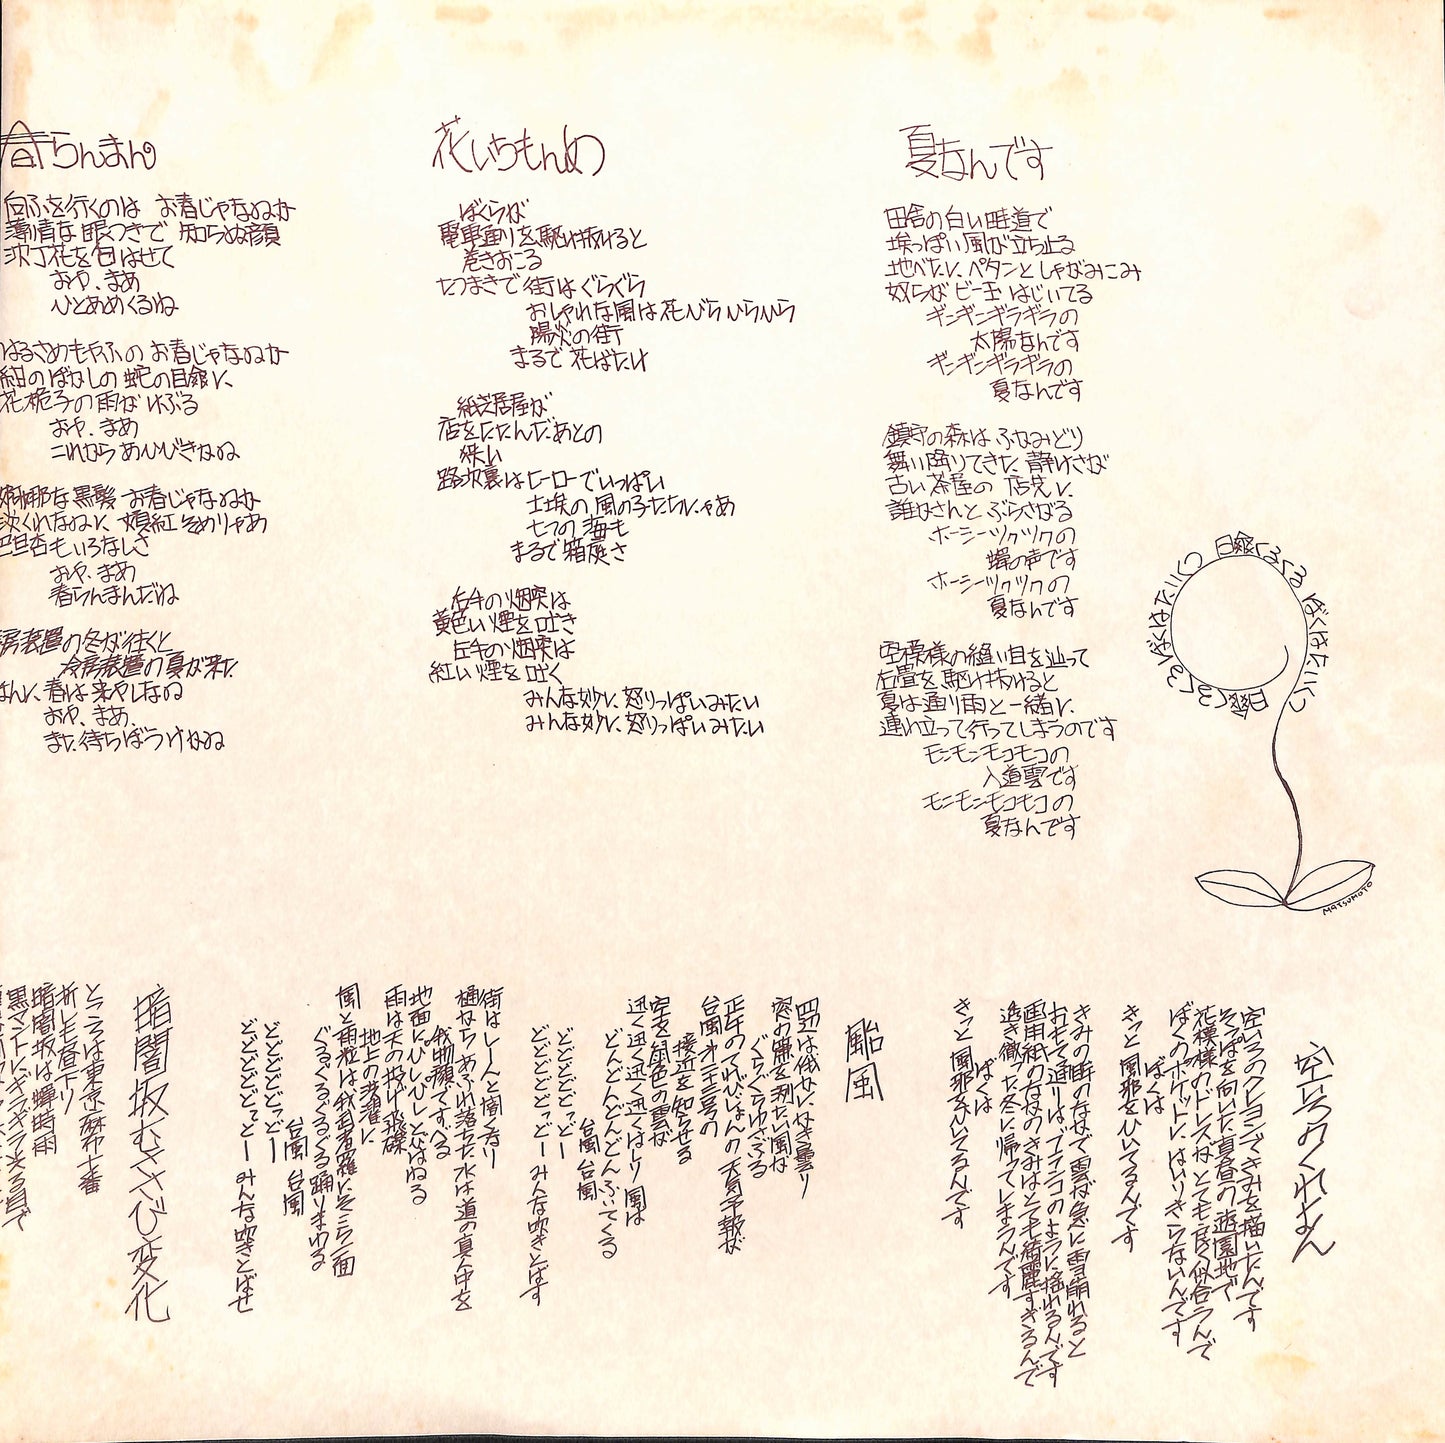 春らんまん
向ふを行くのは お春じゃなゐか
薄情な眼つきで 知らぬ顔
沈丁花を匂はせて
おや、まあ
ひとあめくるね
はるさめもやふの お春じゃなゐか
紺のぼかしの 蛇の目傘に
花梔子の雨がけぶる
おや、まあ
これから あひびきかゐ
婀娜な黒髪 お春じゃなゐか
淡くれなゐに 頬紅そめりゃあ
巴旦杏もいろなしさ
おや、まあ
春らんまんだね
房装置の冬が往くと
冷房装置の夏が来た
ほんに春は来やしなゐ
おや、まあ、
また待ちぼうけかゐ
花いちもんめ
ぼくらが
電車通りを駆け抜けると
巻きおこる
たつまきで街はぐらぐら
おしゃれな風は花びらひらひら
陽炎の街
まるで花ばたけ
紙芝居屋が
店をたたんだあとの
狭い
路次裏はヒーローでいっぱい
土埃の風の子たちにゃあ
七つの海も
まるで箱庭さ
右手の烟突は
黄色い煙を吐き
左手の烟突は
紅い煙を吐く
みんな妙に怒りっぽいみたい
みんな妙に怒りっぽいみたい
夏なんです
田舎の白い畦道で
埃っぽい風が立ち止る
地べたにペタンとしゃがみこみ
奴らがビー玉はじいてる
ギンギンギラギラの
太陽なんです
ギンギンギラギラの
夏なんです
鎮守の森はふかみどり
舞い降りてきた静けさが
古い茶屋の店先に
誰かさんとぶらさがる
ホーシーツクツクの
蝉の声です
ホーシーツクツクの
夏なんです
空模様の縫い目を辿って
石畳を駆け抜けると
夏は通り雨と一緒に
連れ立って行ってしまうのです
モンモンモコモコの
入道雲です
モンモンモコモコの
夏なんです
日傘くるくる ぼくはたいくつ
日傘くるくる ぼくはたいくつ
MATSUMOTO
空いろのくれよん
空いろのクレヨンできみを描いたんです
そっぽを向いた真昼の遊園地で
花模様のドレスがとても良く似合うんで
ぼくのポケットにはいりきらないんです
ぼくは
きっと風邪をひいてるんです
きみの眼のなかで雲が急に雪崩れると
おもて通りはブランコのように揺れるんです
画用紙のなかのきみはとても綺麗すぎるんで
透き徹った冬に帰ってしまうんです
ぼくは
きっと風邪をひいてるんです
颱風
四辺は俄かにかき曇り
窓の簾を洌たい風が
ぐらぐらゆさぶる
正午のてれびじょんの天気予報が
台風第二十三号の
接近を知らせる
空を鼠色の雲が
迅く迅く迅く迅くはしり 風は
どんどんどんどんふいてくる
台風 台風
どどどどどっどー
どどどどどどっどー みんな吹きとばす
街はしーんと闇くなり
樋から あふれ落ちた水は道の真ん中を
我物顔ですべる
地面にひしひしとびはねる
雨は天の投げ飛礫
地上の者共に
風と雨粒は我武者羅にそこら一面
ぐるぐるぐるぐる踊りまわる
台風 台風
どどどどどっどー
どどどどどどっどー みんな吹きとばせ
暗闇坂むささび変化
ところは東京麻布十番
折しも昼下り
暗闇坂は蝉時雨
黒マントにギラギラ光る目で